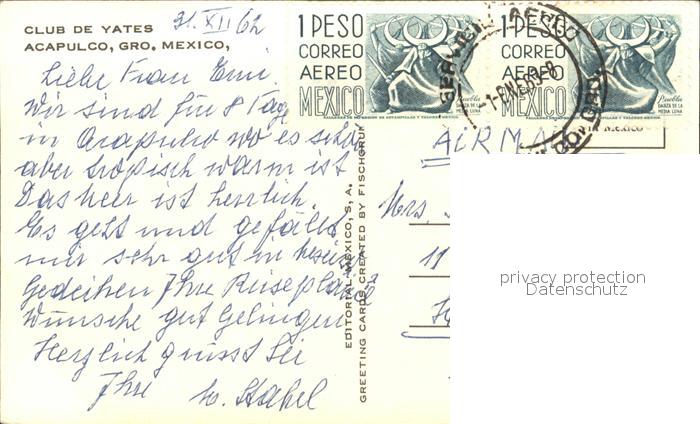 CLUB DE YATES
ACAPULCO, GRO. MEXICO,
31. XII 62
Liebe Frau Emi.
Wir sind für 8 Tag
in Acapulco wo es schön
aber tropisch warm ist
Das Meer ist herrlich.
Es geht und gefällt
mir sehr gut in Mexico
Gedeihen Ihre Reisepläne?
Wünsche gut Gelingen
Herzlich grüsst Sei
Ihre
W. Stahel
EDITORIAL MEXICO, S. A.
GREETING CARDS CREATED BY FISCHGRUND
1 PESO
CORREO
AEREO
MEXICO
Puebla
DANZA DE LA
MEDIA LUNA
1 PESO
CORREO
AEREO
MEXICO
Puebla
DANZA DE LA
MEDIA LUNA
SERVICIO AEREO
AIRMA
Mrs.
11
privacy protection
Datenschutz